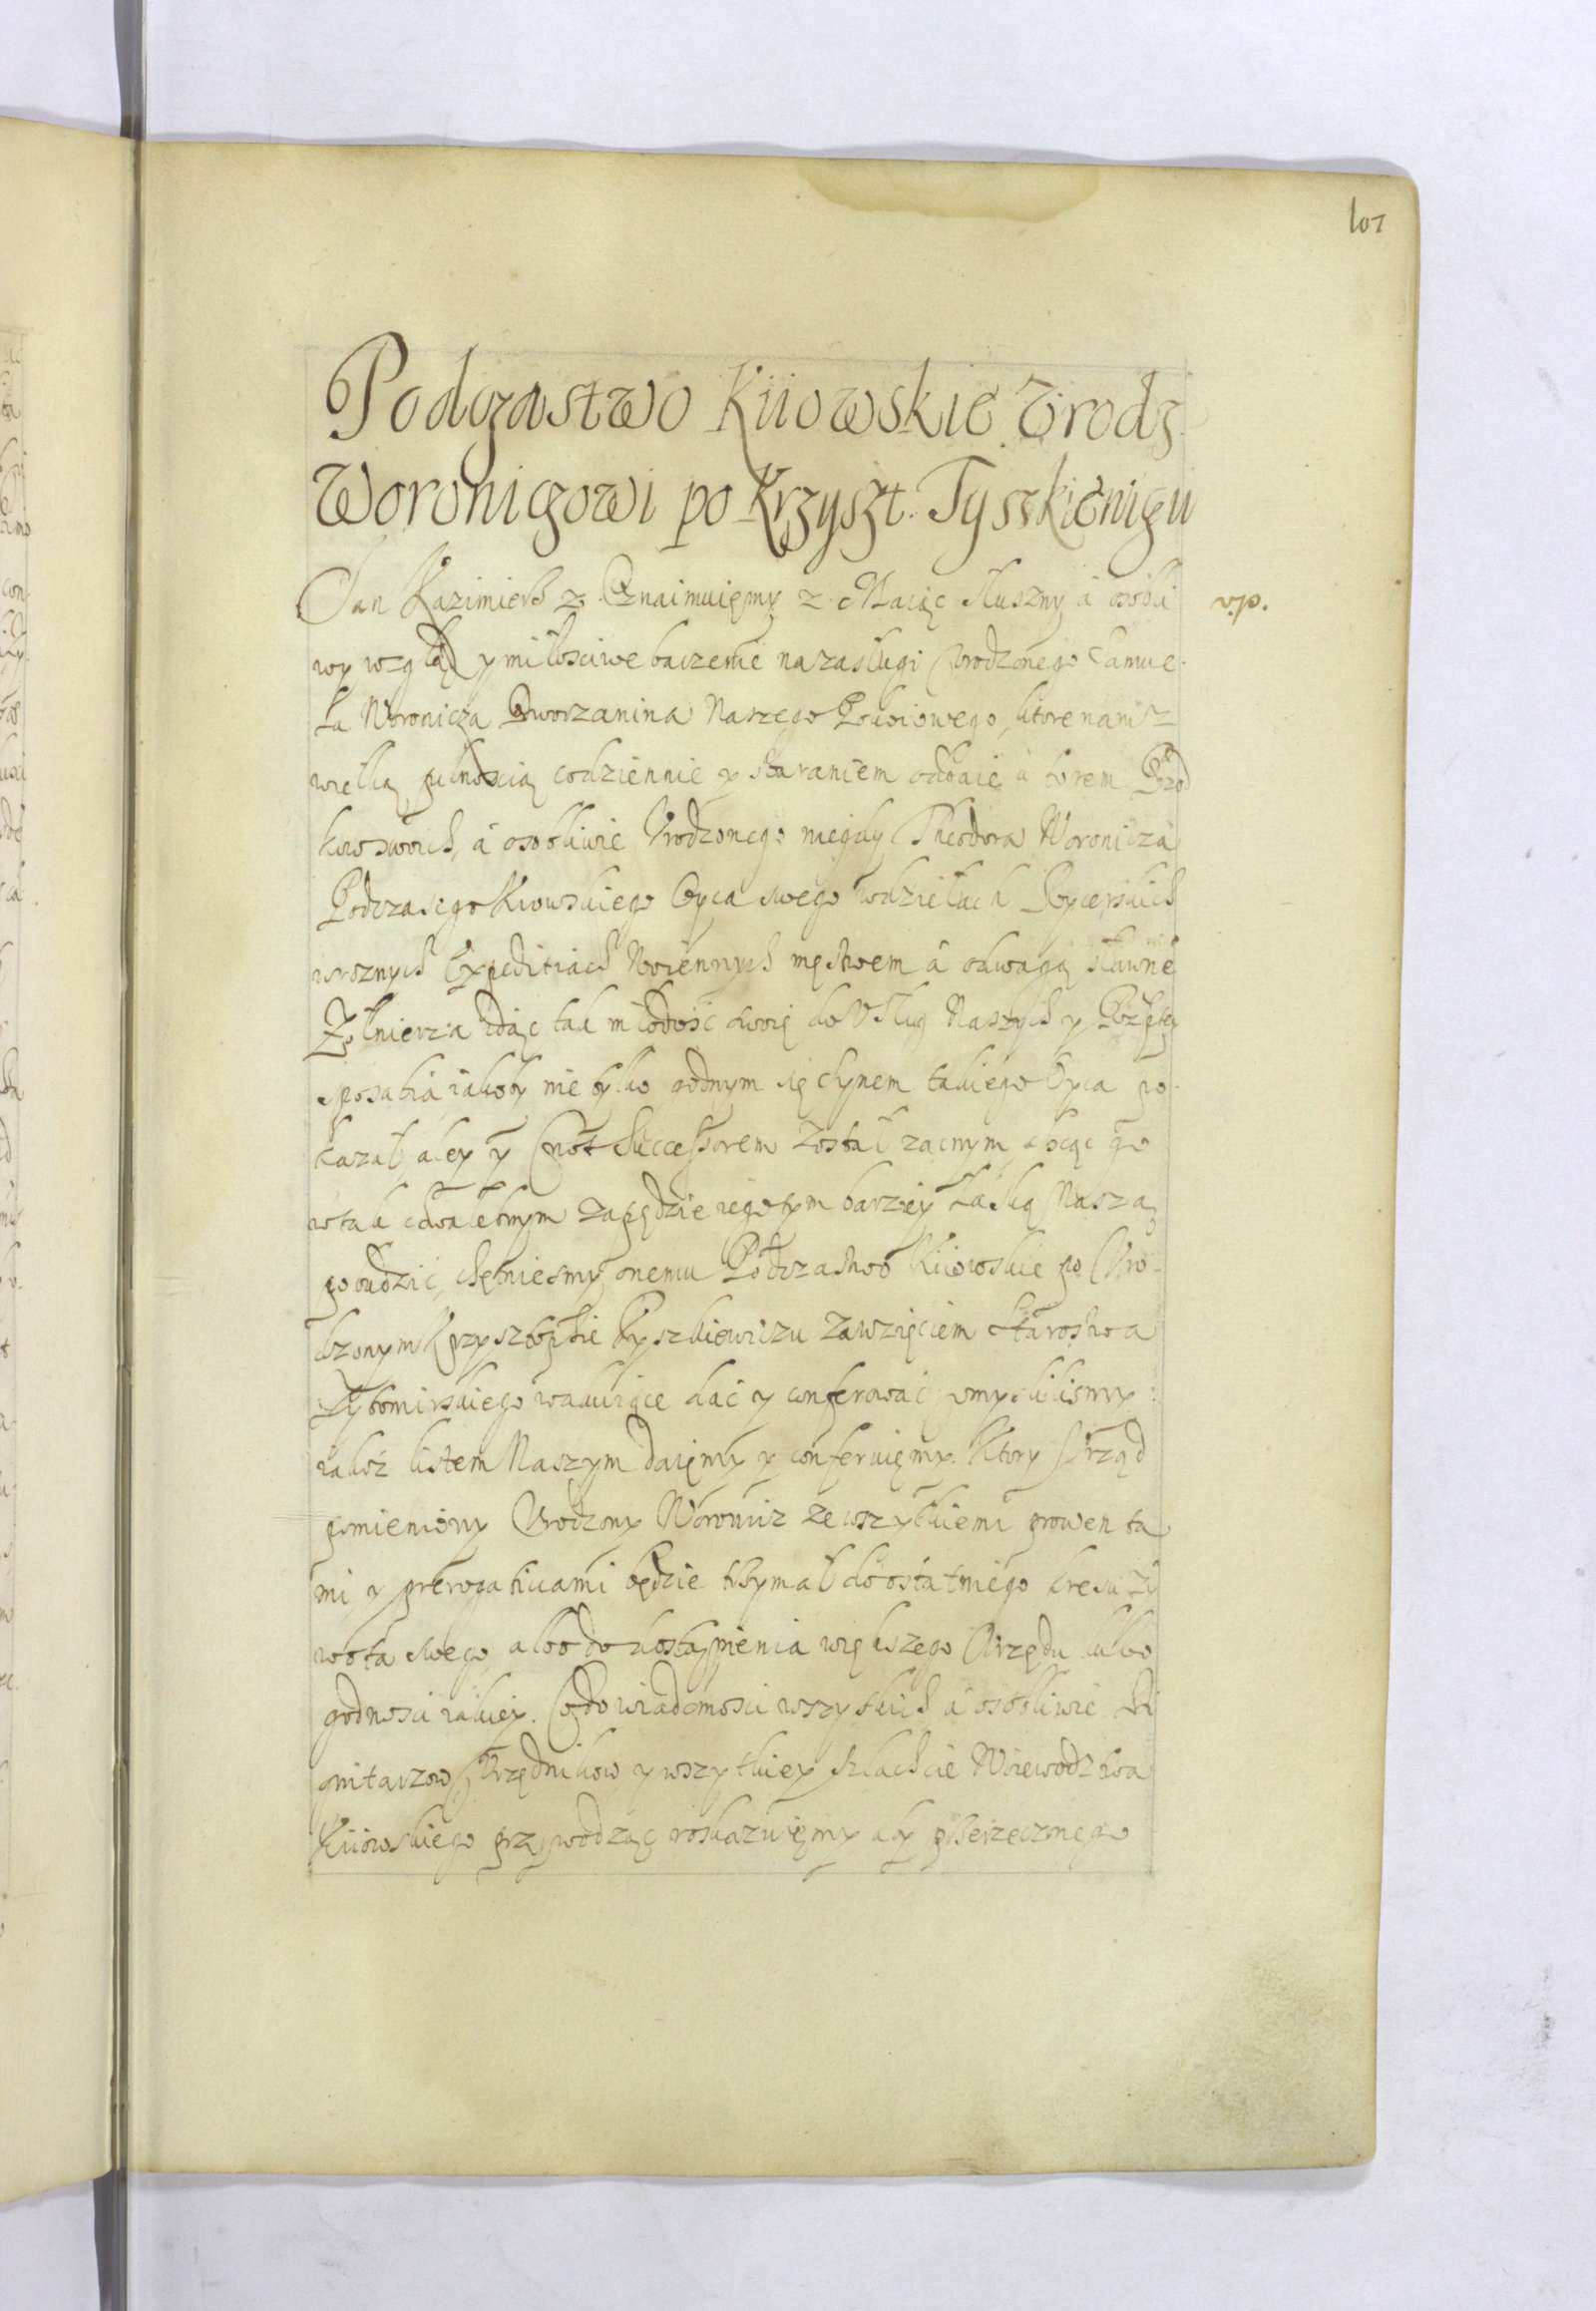 107
Podczastwo Kiiowskie Vrodz.
Woroniczowi po Krzyszt. Tyszkiewiczu
Jan Kazimierz z. Oznaimuięmy z. Maiąc słuszny á osobli
wy wzgląd y miłosciwe baczenie na zasługi Vrodzonego Samue-
la Woronicza Dworzanina Naszego Pokoiowego, ktore nam z
wielką pilnością codziennie y staraniem oddaie á torem Przod
kow swoich, á osobliwie Vrodzonego niegdy Theodora Woronicza
Podczaszego Kiowskiego Oyca swego w dziełach Rycerskich
w roznych Expeditiach Woiennych męstwem á odwagą sławne
Zołnierza idąc tak młodość swoię do Vsług Naszych y Rzptey
sposabia iakoby nie tylko godnym się synem takiego Oyca po-
kazał, ale y Cnot Successorem został zacnym, chcąc go
w tak chwalebnym zapędzie iego tym barziey Łaską Naszą
pobudzić, chętniesmy onemu Podczastwo Kiiowskie po Vro-
dzonym Krzysztophie Tyszkiewiczu za wzięciem Starostwa
Zytomirskiego wakuiące dać y conferować vmyslilismy:
iakoż listem Naszym daięmy y conferuięmy. Ktory Vrząd
pomieniony Vrodzony Woronicz ze wszytkiemi prowenta
mi y prerogatiwami będzie trzymał do ostatniego kresu ży
wota swego albo do dostąpienia większego Vrzędu albo
godnosci iakiey. Co do wiadomosci wszytkich á osobliwie Di
gnitarzow, Vrzędnikow y wszytkiey szlachcie Woiewodztwa
Kiiowskiego przywodząc roskazuięmy aby pomienionego
v.p.